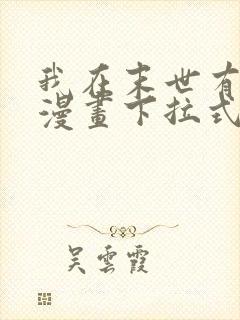 我在末世有
漫畫下拉式
吳雲霞